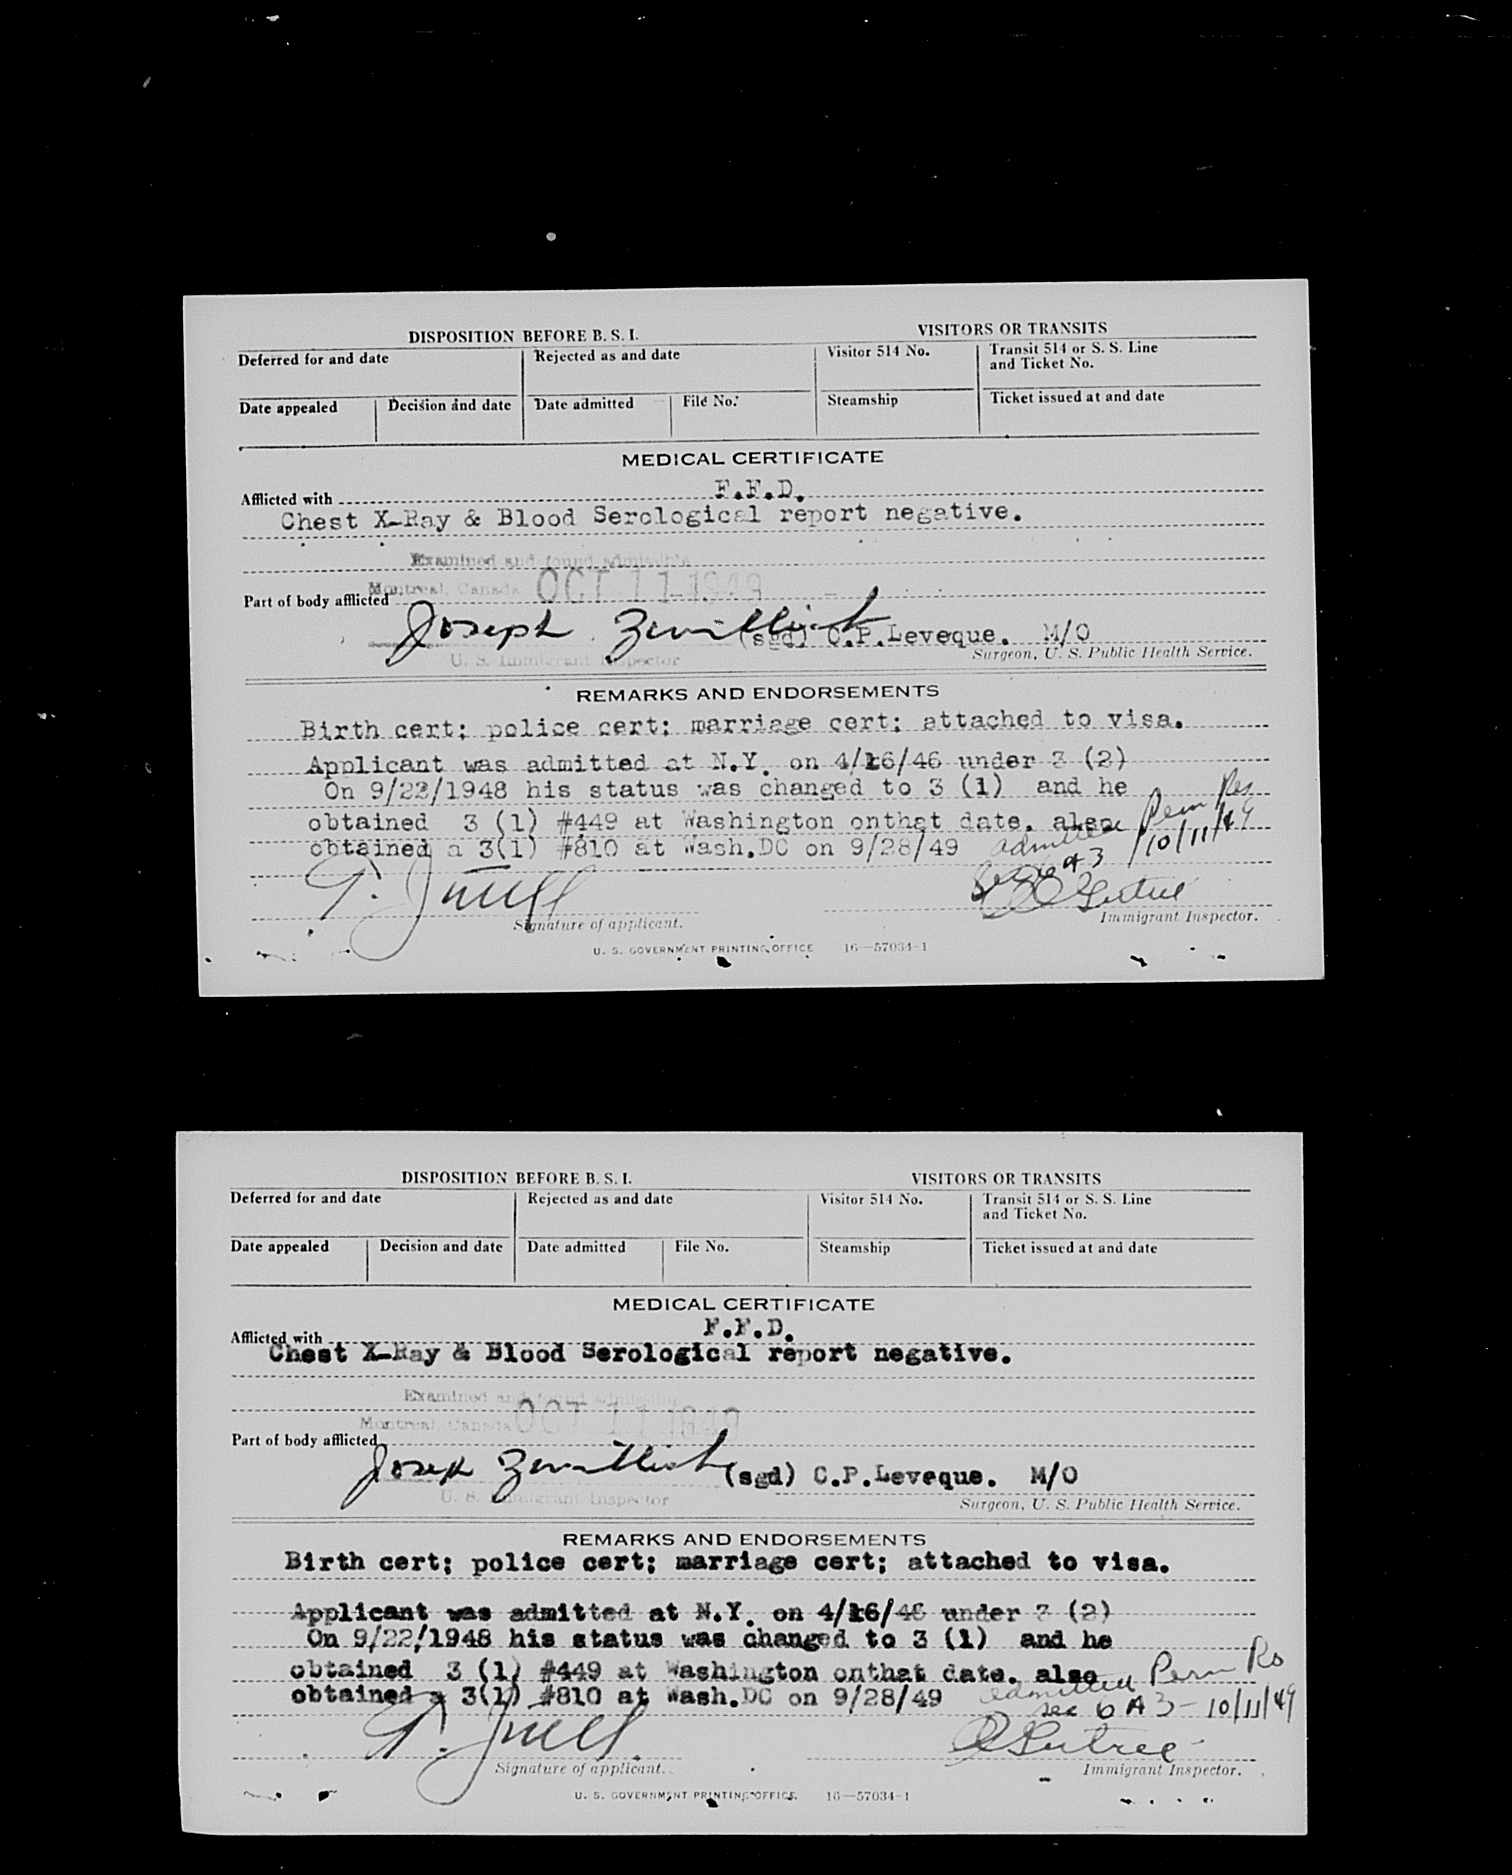 DISPOSITION BEFORE B. S. I.
VISITORS OR TRANSITS
Deferred for and date
Rejected as and date
Visitor 514 No.
Transit 514 or S. S. Line
and Ticket No.
Date appealed
Decision and date
Date admitted
File No.
Steamship
Ticket issued at and date
MEDICAL CERTIFICATE
F.F.D.
Afflicted with
Chest X-Ray & Blood Serological report negative.
Examined and found admissible
Montreal, Canada OCT 11 1949
Part of body afflicted
Joseph
(sgd) C.P.Leveque. M/O
U. S. Immigrant Inspector
Surgeon, U. S. Public Health Service.
REMARKS AND ENDORSEMENTS
Birth cert; police cert; marriage cert; attached to visa.
Applicant was admitted at N.Y. on 4/16/46 under 3 (2)
On 9/22/1948 his status was changed to 3 (1) and he
obtained 3 (1) #449 at Washington onthat date. also
obtained a 3(1) #810 at Wash.DC on 9/28/49
admitted Perm Res
Sec 6 A 3 10/11/49
Signature of applicant.
Immigrant Inspector.
U. S. GOVERNMENT PRINTING OFFICE 16—57034-1
DISPOSITION BEFORE B. S. I.
VISITORS OR TRANSITS
Deferred for and date
Rejected as and date
Visitor 514 No.
Transit 514 or S. S. Line
and Ticket No.
Date appealed
Decision and date
Date admitted
File No.
Steamship
Ticket issued at and date
MEDICAL CERTIFICATE
F.F.D.
Afflicted with
Chest X-Ray & Blood Serological report negative.
Examined and found admissible
Montreal, Canada OCT 11 1949
Part of body afflicted
Joseph
(sgd) C.P.Leveque. M/O
U. S. Immigrant Inspector
Surgeon, U. S. Public Health Service.
REMARKS AND ENDORSEMENTS
Birth cert; police cert; marriage cert; attached to visa.
Applicant was admitted at N.Y. on 4/16/46 under 3 (2)
On 9/22/1948 his status was changed to 3 (1) and he
obtained 3 (1) #449 at Washington onthat date. also
obtained a 3(1) #810 at Wash.DC on 9/28/49
admitted Perm Rs
sec 6 A 3 - 10/11/49
Signature of applicant.
Immigrant Inspector.
U. S. GOVERNMENT PRINTING OFFICE 16—57034-1